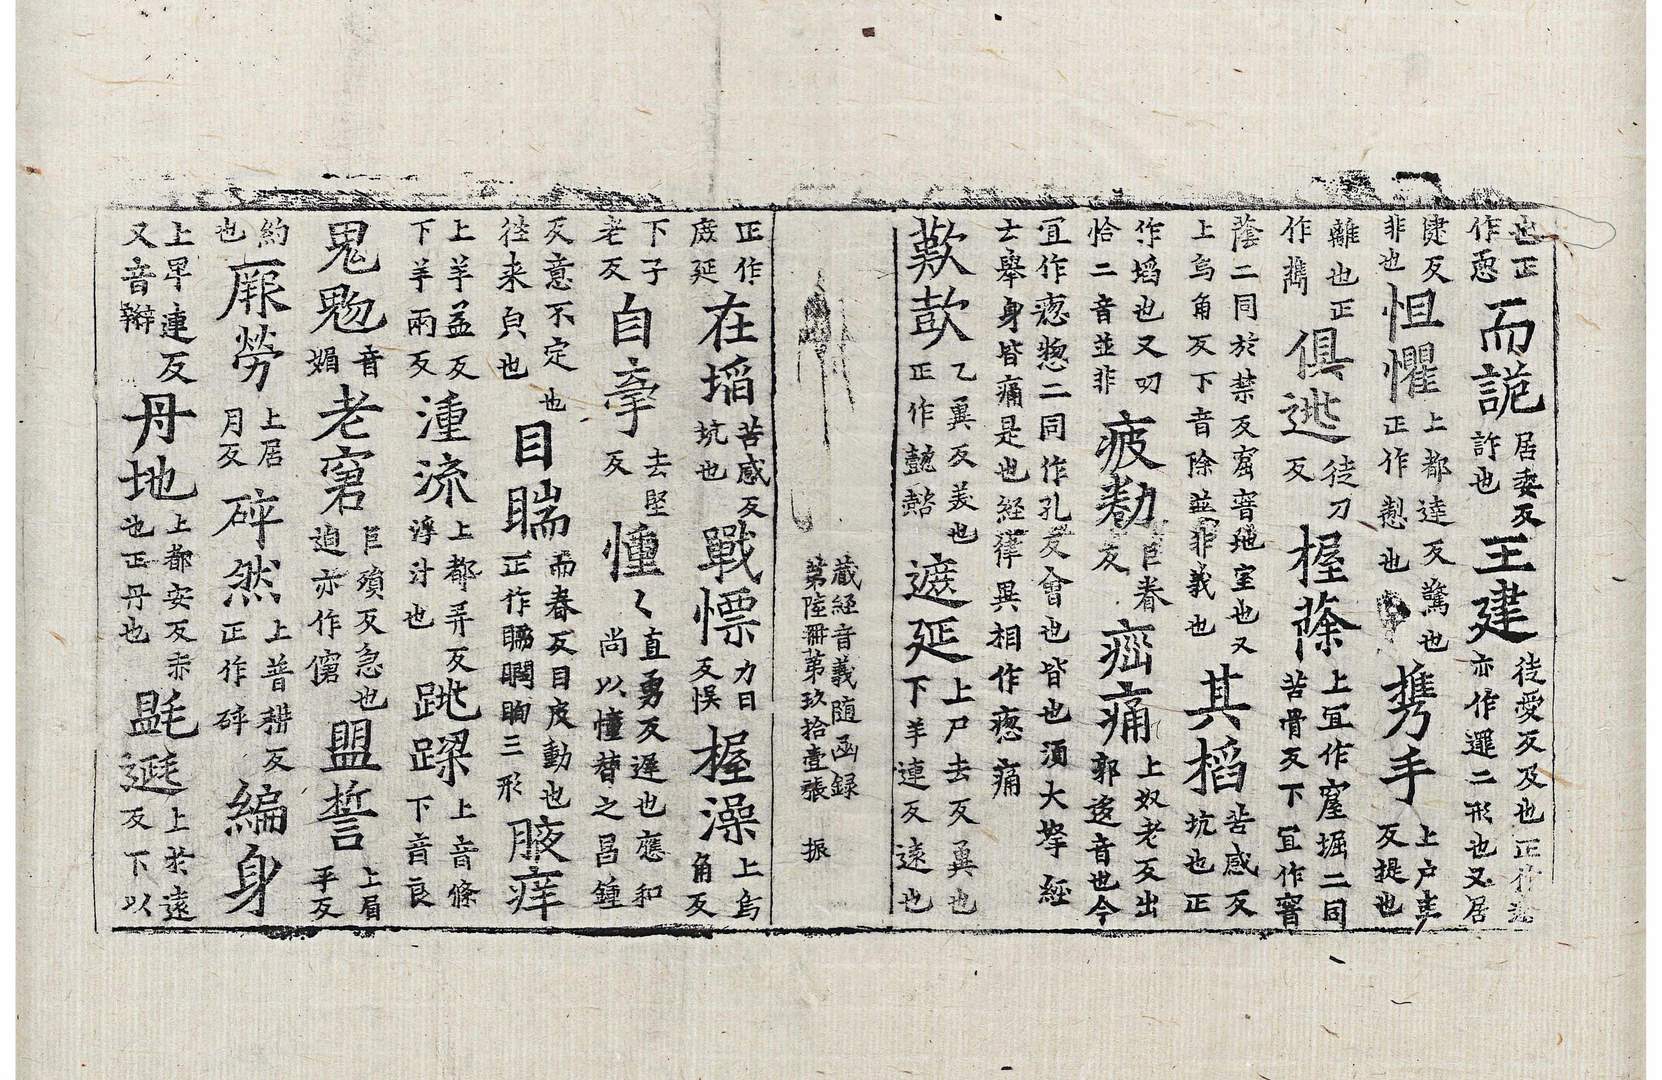 也正作悪而詭居委反詐也王建徒愛反及也正作逮亦作𨘤二形也又居
健反非也怛懼上都達反驚也正作㤠也携手上戶圭反提也
離也正作携俱逃徒刀反榅蔭上宜作窟堀二同苦骨反下宜作窨
蔭二同於禁反窟窨地室也又上烏角反下音除並非義也其搯苦感反坑也正
作塪也又叨恰二音並非疲勌巨眷反㾓痛上奴老反出郭迻音也今
宜作㥛惱二同作孔反會也皆也湏大挐經士舉身皆痛是也經律異相作㥛痛
歎㰻乙兾反美也正作懿㦤遮延上尸去反兾也下羊連反遠也
藏經音義随函録
第陸冊第玖拾壹張 振
正作庶延在塪苦感反坑也戰慄力日反悮握澡上烏角反
下子老反自牽去堅反憧〻直勇反遲也應和尚以憧替之昌鍾
反意不定徃来皃也也目𥆧而春反目皮動也正作𥆧瞤眴三形腋痒
上羊益反下羊兩反湩流上都弄反淳汁也跳踩上音條下音良
鬼魅音媚老窘巨殞反急也迫亦作僒盟誓上眉平反
約也厥勞上居月反碎然上普耕反正作砰編身
上早連反又音辮丹地上都安反赤也正丹也𣯶遞上於遠反下以